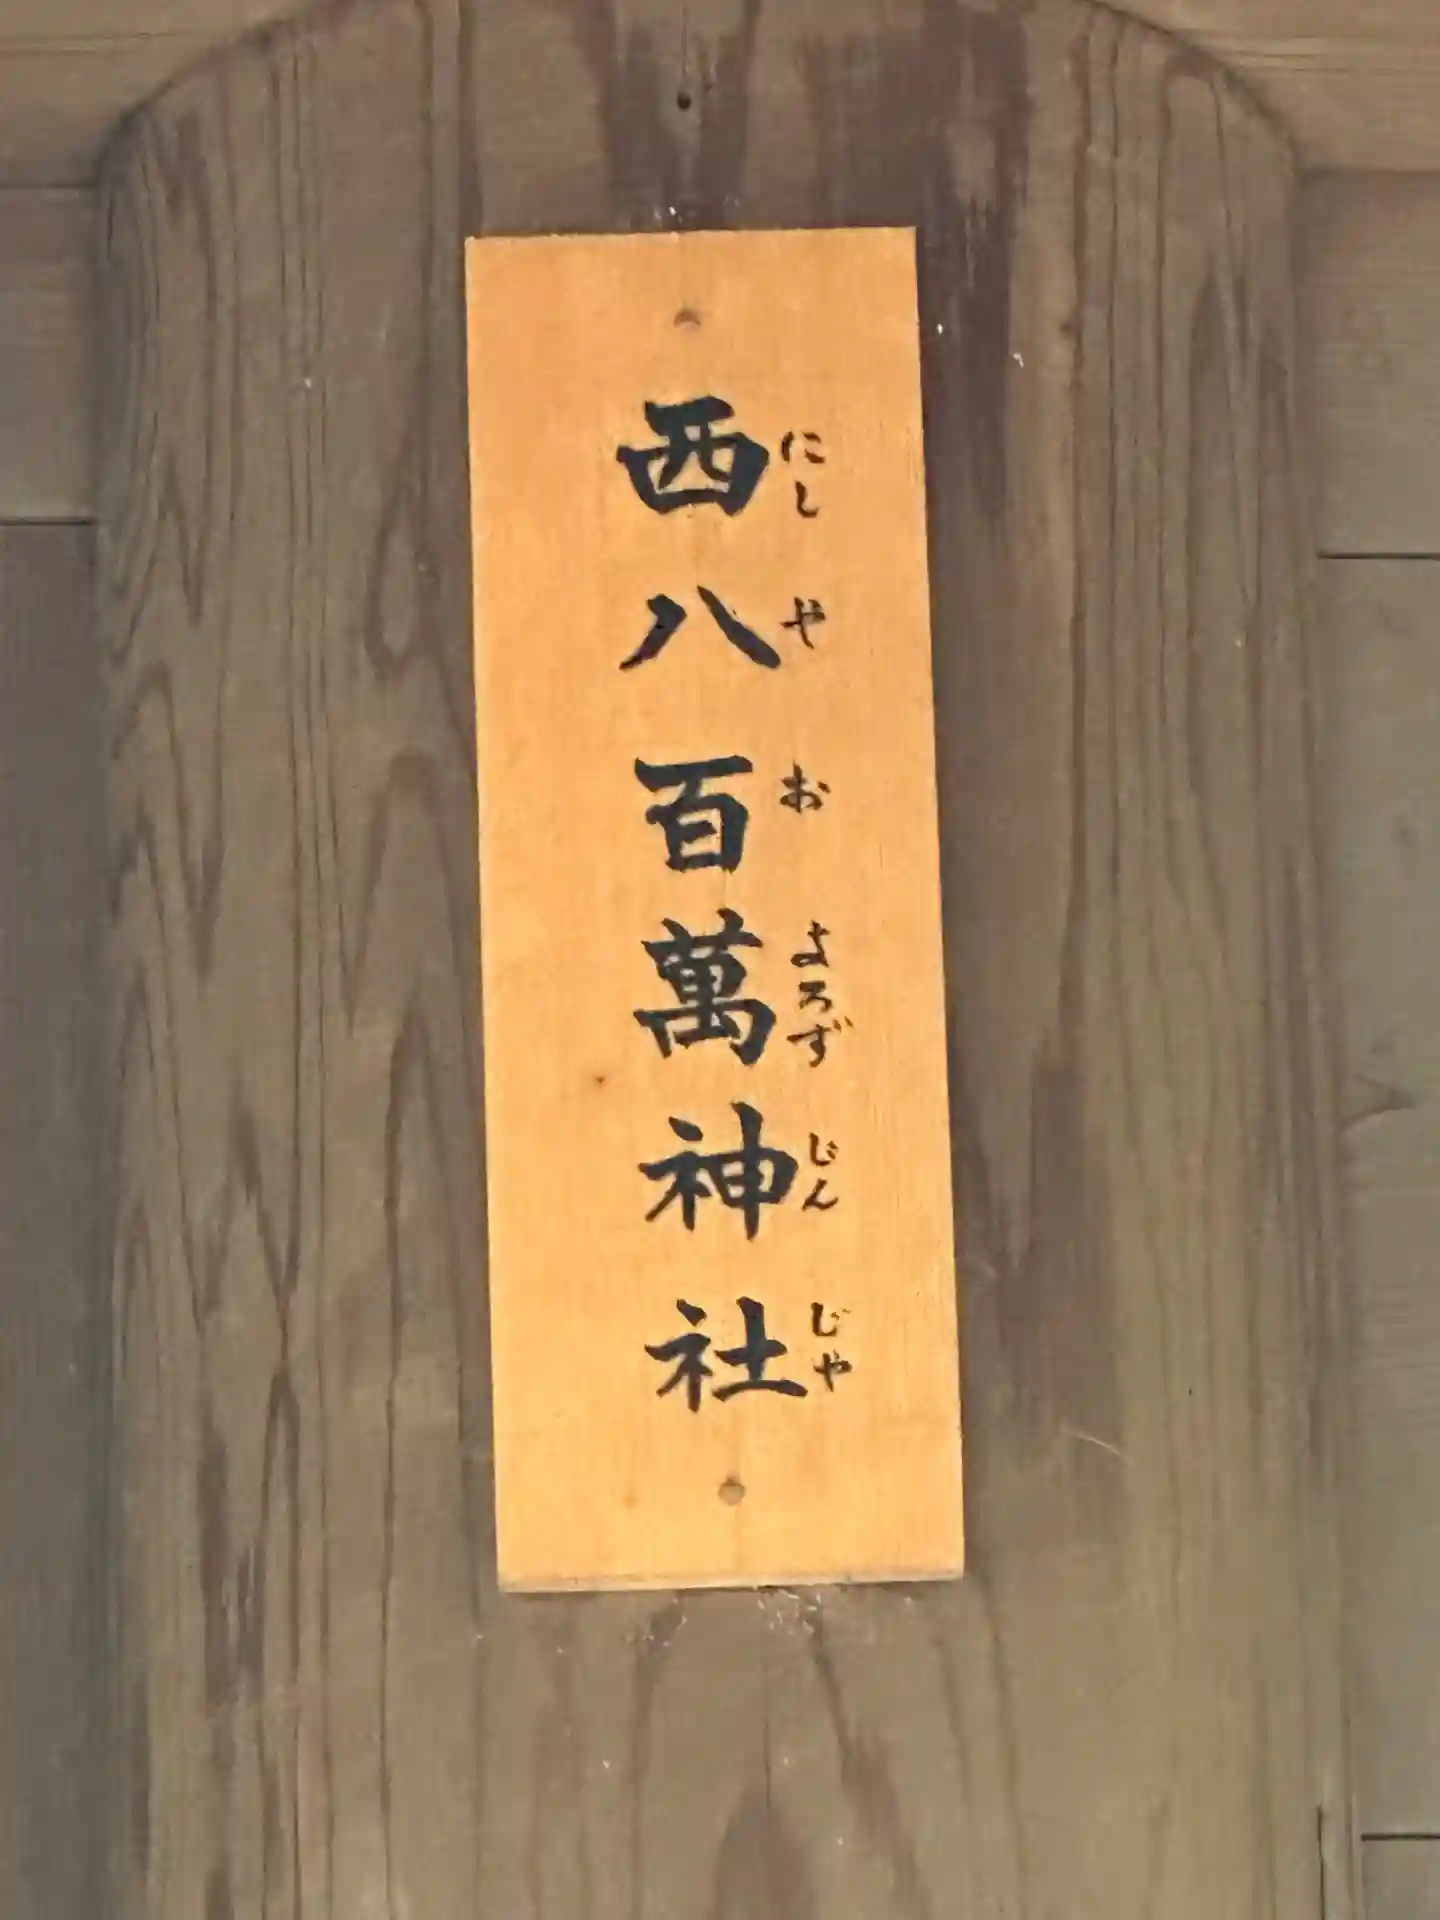 西八百萬神社
にしやおよろずじんじゃ